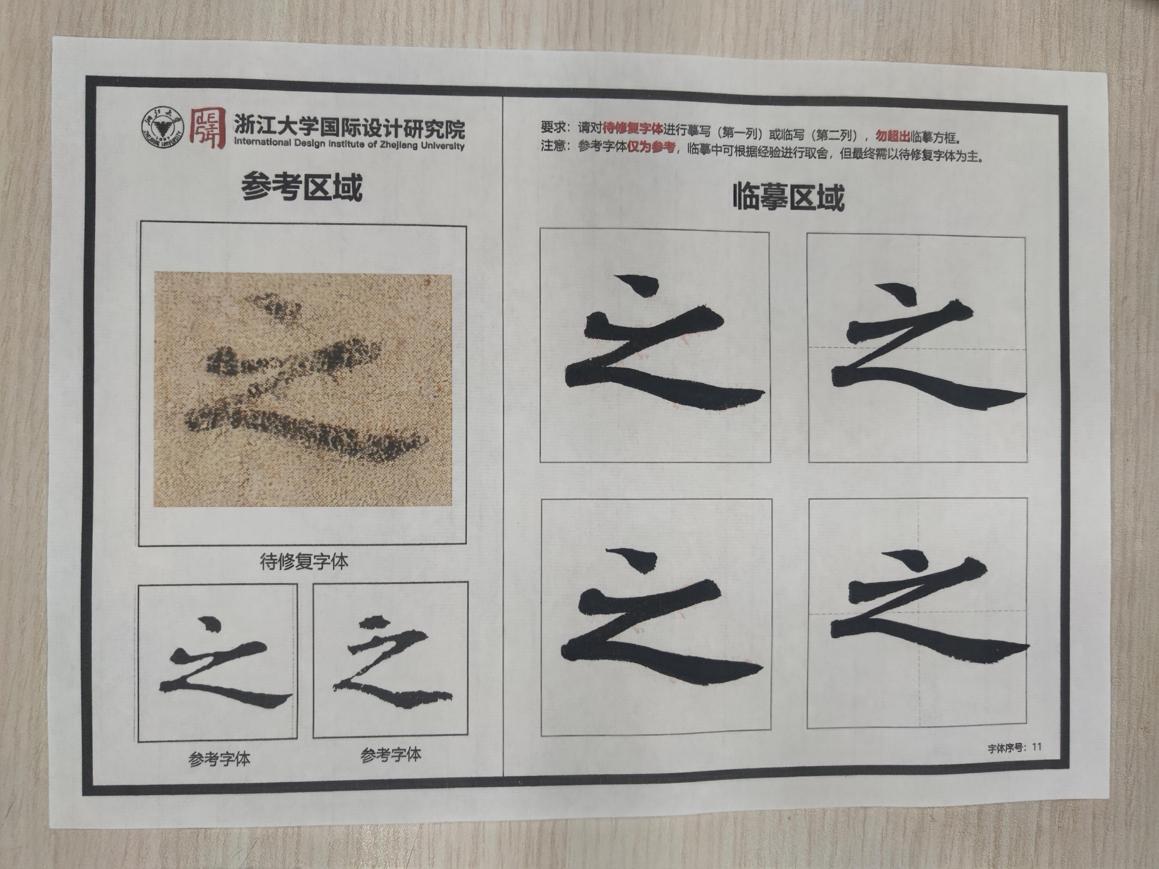 浙江大学国际设计研究院
International Design Institute of Zhejiang University
参考区域
待修复字体
之
之
参考字体
参考字体
要求：请对待修复字体进行摹写（第一列）或临写（第二列），勿超出临摹方框。
注意：参考字体仅为参考，临摹中可根据经验进行取舍，但最终需以待修复字体为主。
临摹区域
之
之
之
之
字体序号：11